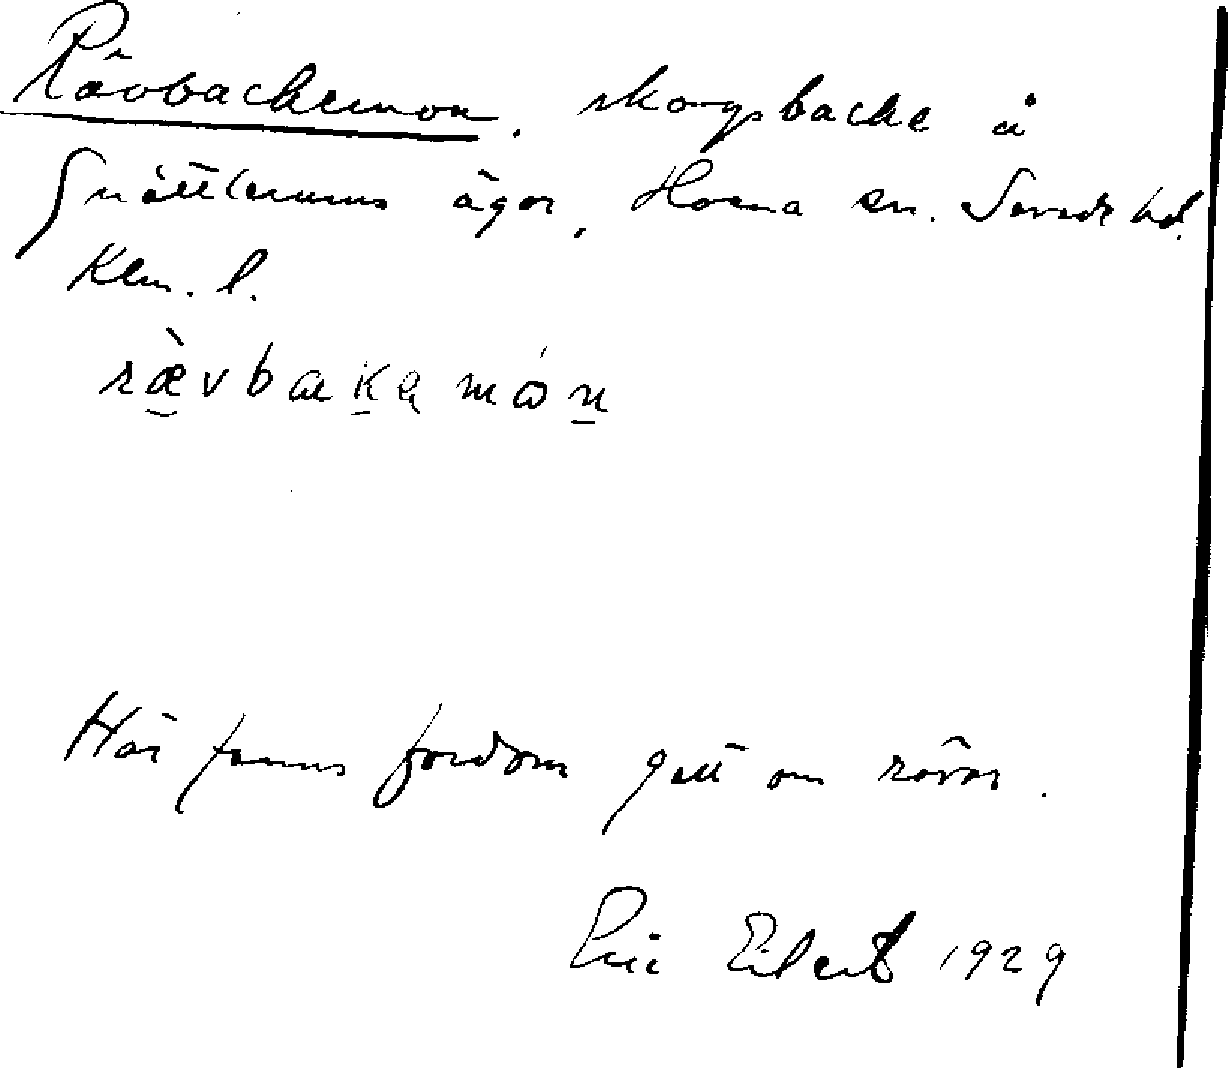 Rävbackemon, skogsbacke å
Snättlerums ägor, Horna sn. Sevede hd.
Klm. l.
ràvbakamón
Här fanns fordom gott om rävar.
Eric Eilert 1929